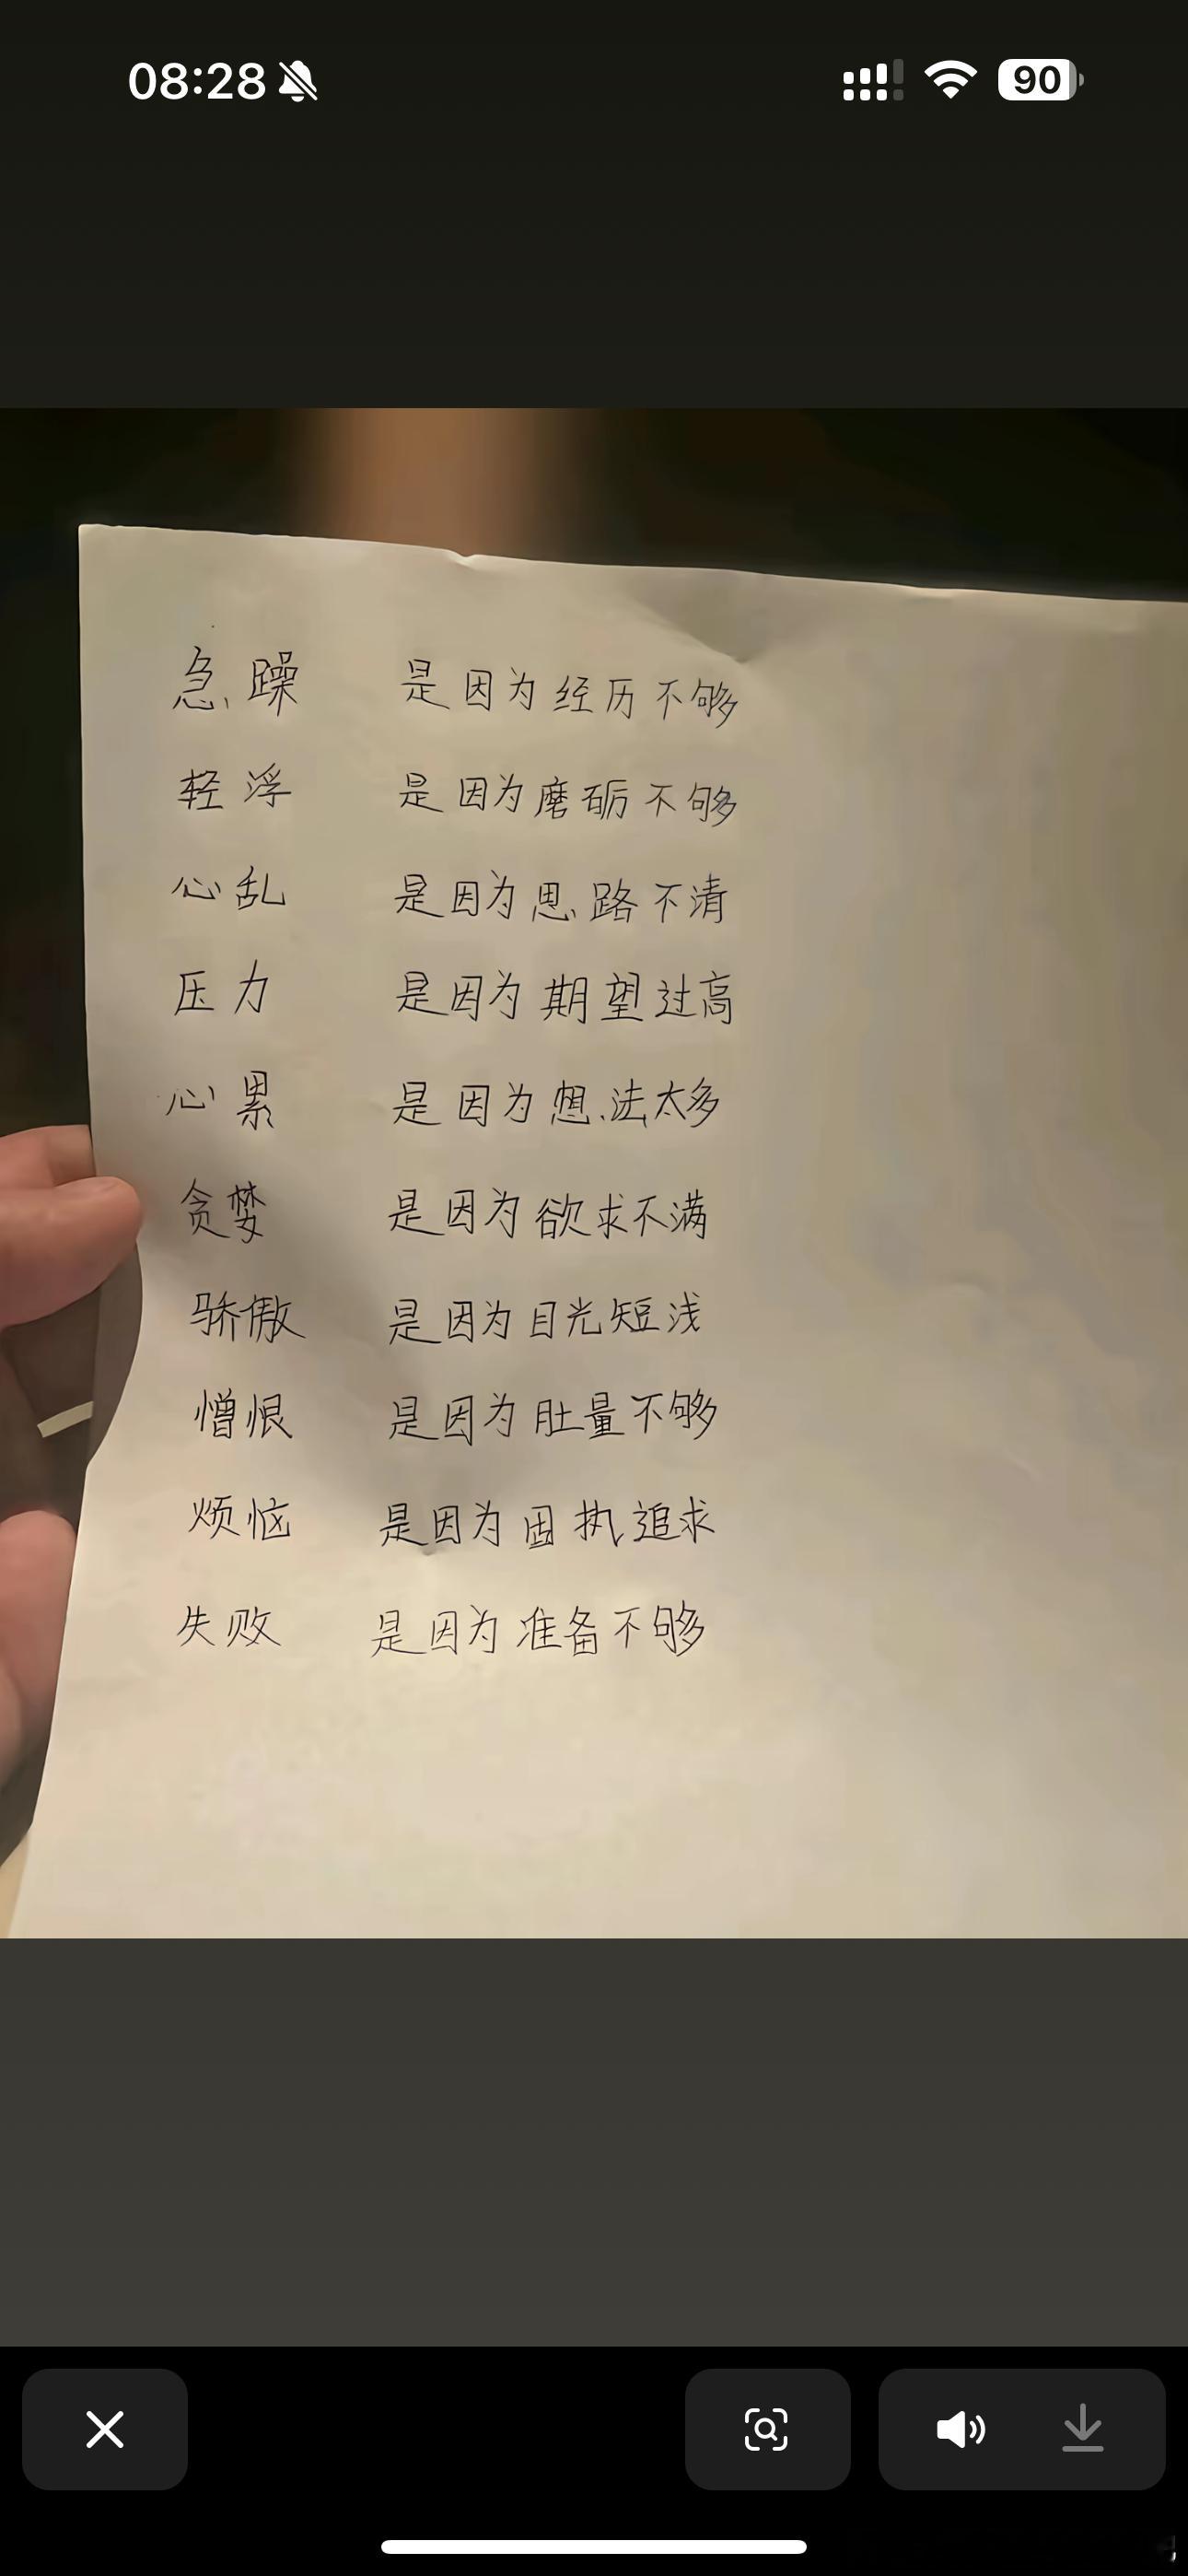 08:28
90
急躁 是因为经历不够
轻浮 是因为磨砺不够
心乱 是因为思路不清
压力 是因为期望过高
心累 是因为想法太多
贪婪 是因为欲求不满
骄傲 是因为目光短浅
憎恨 是因为肚量不够
烦恼 是因为固执追求
失败 是因为准备不够